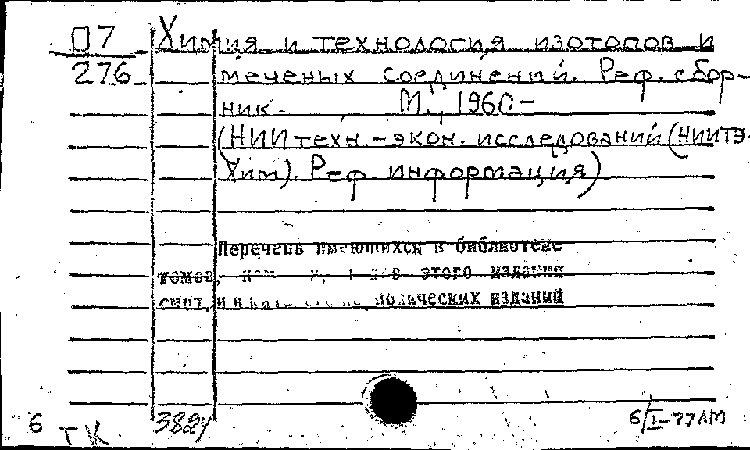 П7 Химия и технология изотопов и
276 меченых соединений. Реф. сбор-
ник. М., 1960-
(НИИ техн.-экон. исследований (НИИТЭ-
Хим). Реф. информация)
Перечень имеющихся в библиотеке
томов, этого издания
смот. и в изданий
6 ТК 382 6/I-77